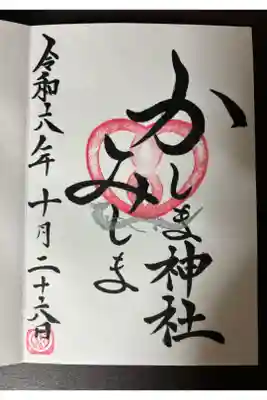 かしま神社
みしま
令和六年 十月二十六日